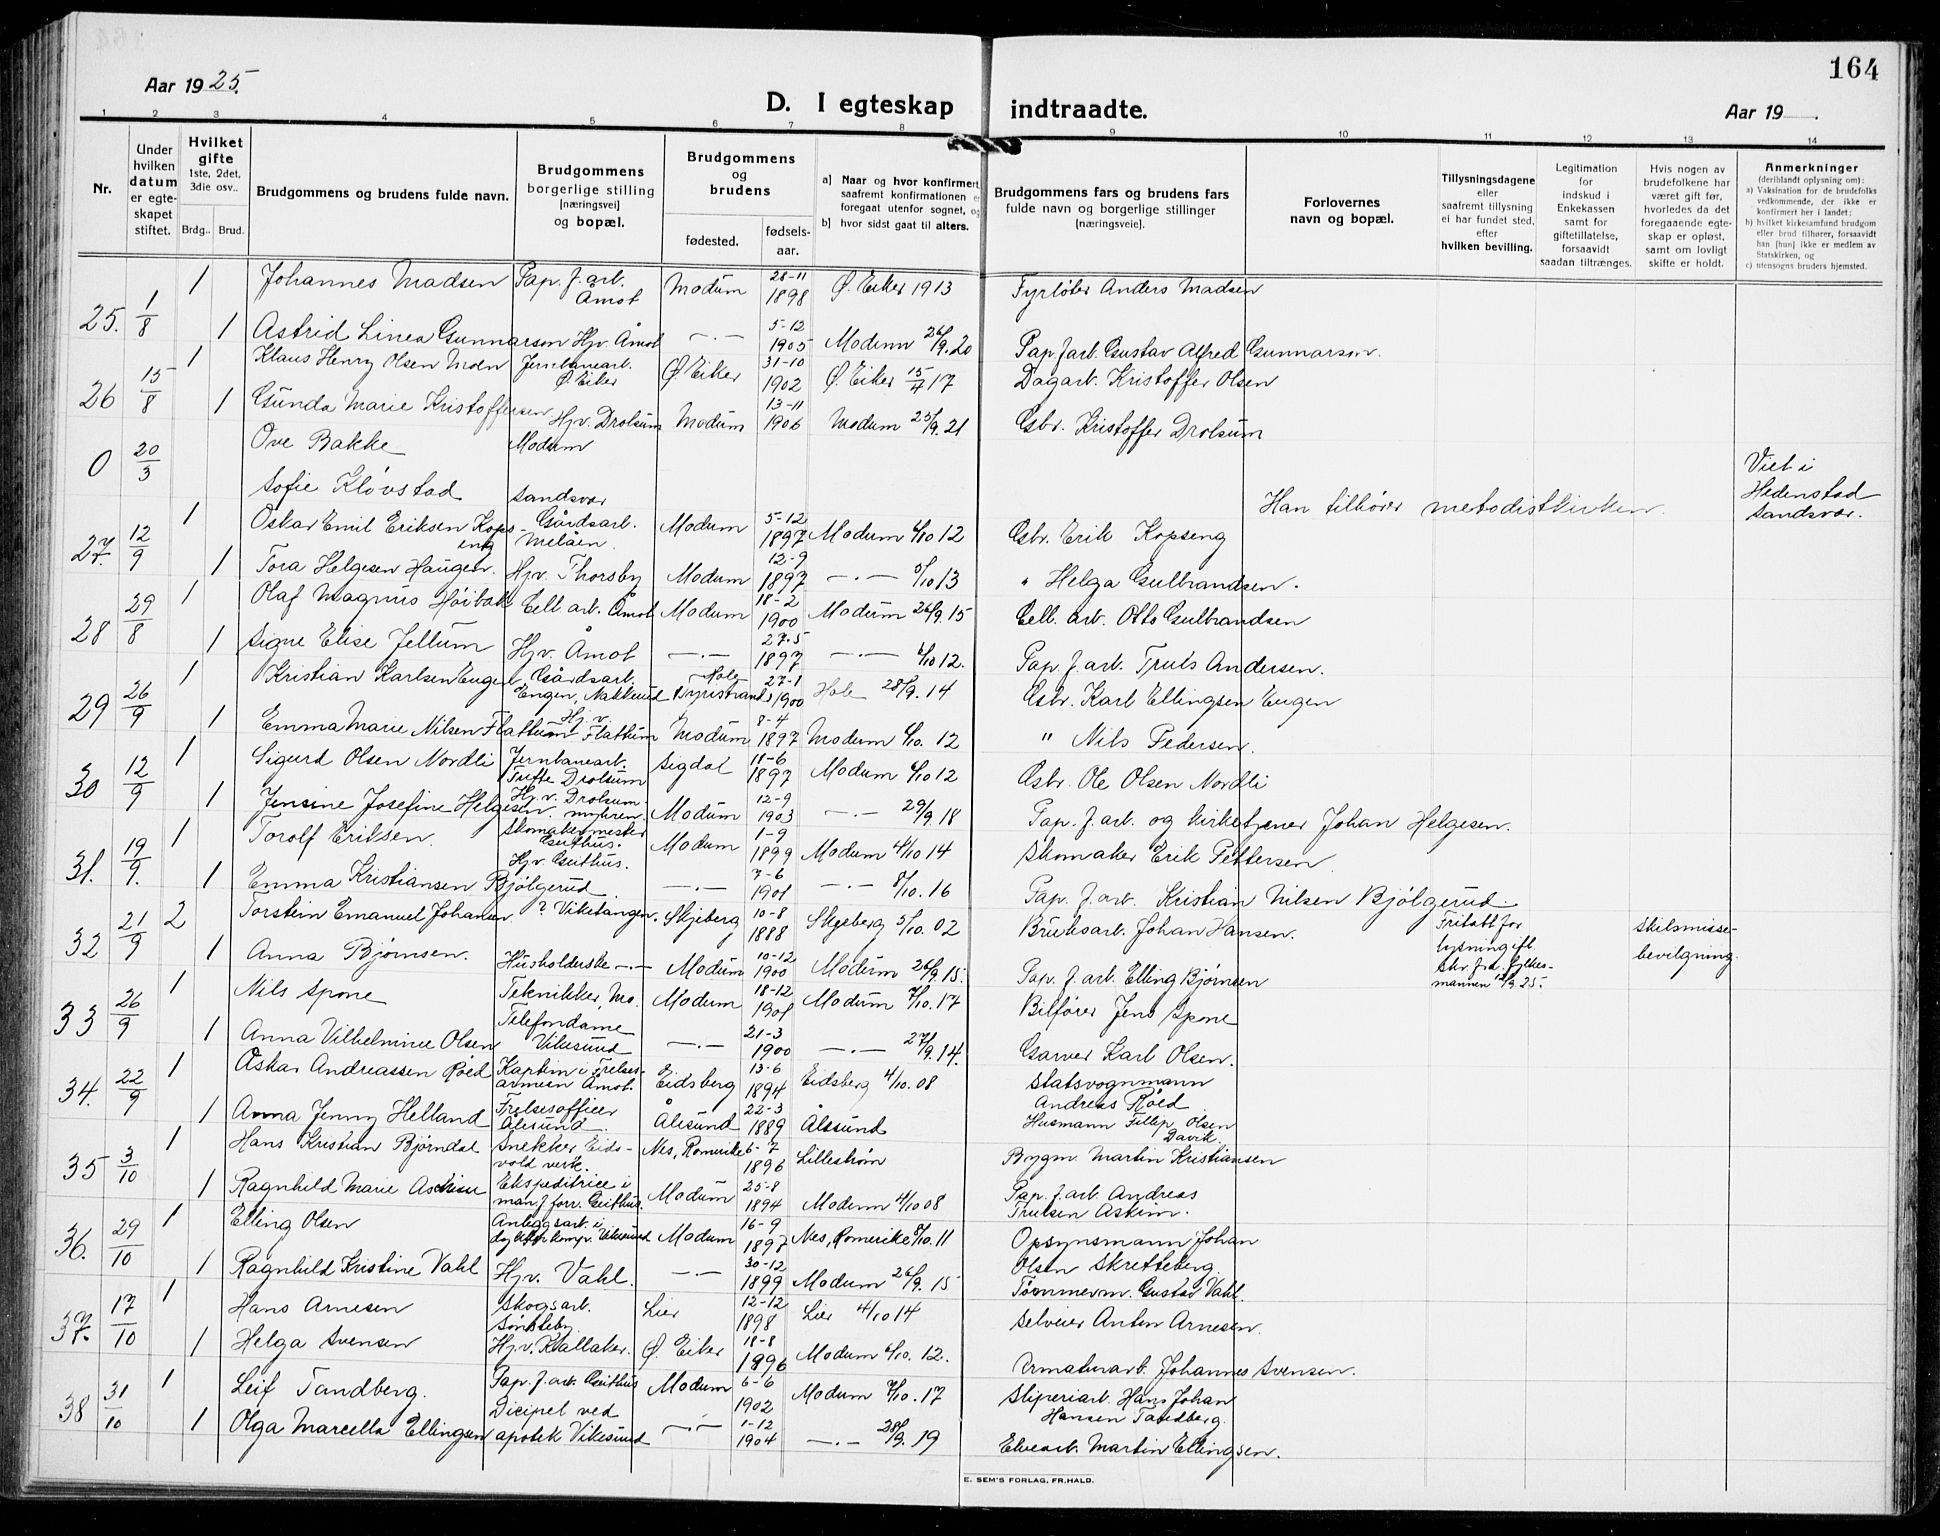 164
Aar 1925.
D. I egteskap indtraadte.
Aar 19 .
1 2 3 4 5 6 7 8 9 10 11 12 13 14
Nr.
Under hvilken datum er egteskapet stiftet.
Hvilket gifte 1ste, 2det, 3die osv..
Brdg.. Brud.
Brudgommens og brudens fulde navn.
Brudgommens borgerlige stilling [næringsvei] og bopæl.
Brudgommens og brudens
fødested.
fødselsaar.
a) Naar og hvor konfirmert, saafremt konfirmationen er foregaat utenfor sognet, og
b) hvor sidst gaat til alters.
Brudgommens fars og brudens fars fulde navn og borgerlige stillinger [næringsveie].
Forlovernes navn og bopæl.
Tillysningsdagene eller saafremt tillysning ei har fundet sted, efter hvilken bevilling.
Legitimation for indskud i Enkekassen samt for giftetillatelse, forsaavidt saadan tiltrænges.
Hvis nogen av brudefolkene har været gift før, hvorledes da det foregaaende egteskap er opløst, samt om lovligt skifte er holdt.
Anmerkninger
(deriblandt oplysning om):
a) Vaksination for de brudefolks vedkommende, der ikke er konfirmert her i landet;
b) hvilket kirkesamfund brudgom eller brud tilhører, forsaavidt han [hun] ikke er medlem av Statskirken, og
c) utensogns bruders hjemsted.
25. 1/8 1 Johannes Madsen Pap. f. arb. Åmot Modum 28-11 1898 Ø. Eiker 1913 Fyrbøter Anders Madsen
1 Astrid Linea Gunnarson Hjv. Åmot —.— 5-12 1905 Modum 26/9. 20 Pap f arb. Gustav Alfred Gunnarson.
26 15/8 1 Klaus Henry Olsen Moen Jernbanearb. Ø. Eiker Ø. Eiker 31-10 1902 Ø. Eiker 15/4 17 Dagarb. Kristoffer Olsen
1 Gunda Marie Kristoffersen Hjv. Drolsum Modum 13-11 1906 Modum 25/9. 21 Gbr. Kristoffer Drolsum
0 20/3 Ove Bakke Modum
Sofie Kløvstad Sandsvær Han tilhører metodistkirken. Viet i Hedenstad Sandsvær.
27. 12/9 1 Oskar Emil Eriksen Kopseng Gårdsarb. Melåen. Modum 5-12 1897 Modum 6/10 12 Gbr. Erik Kopseng
1 Tora Helgesen Haugen. Hjv. Thorsby Modum 12-9 1897 —.— 5/10 13 " Helga Gulbrandsen.
28 29/8 1 Olaf Magnus Høibak Cell. arb. Åmot Modum 18-2 1900 Modum 26/9. 15 Cell. arb. Otto Gulbrandsen
1 Signe Elise Jellum Hjv. Åmot —.— 27-5 1897 —.— 6/10 12. Pap. f. arb. Truls Andersen.
29 26/9 1 Kristian Karlsen Engen Gårdsarb. Engen, Nakkerud Hole Tyristrand 27-1 1900 Hole 28/9. 14 Gbr. Karl Ellingsen Engen
1 Emma Marie Nilsen Flattum Hj. v. Flattum Modum 8-4 1897 Modum 6/10. 12 " Nils Pedersen.
30 12/9 1 Sigurd Olsen Nordli Jernbanearb. Tufte Drolsum Sigdal 11-6 1897 Modum 6/10 12 Gbr. Ole Olsen Nordli
1 Jensine Josefine Helgesen. Hj. v. Drolsum myhren. Modum 12-9 1903 —.— 29/9. 18 Pap. f. arb. og kirketjener Johan Helgesen.
31. 19/9. 1 Torolf Eriksen. Skomakermester Geithus. Modum 1-9 1899 Modum 4/10 14 Skomaker Erik Pettersen.
1 Emma Kristiansen Bjølgerud Hjv. Geithus. —.— 7-6 1901 —.— 8/10. 16 Pap. f. arb. Kristian Nilsen Bjølgerud.
32 21/9 2 Torstein Emanuel Johansen ? Viketangen. Skjeberg 10-8 1888 Skjeberg 5/10. 02 Bruksarb. Johan Hansen. Fritatt for lysning eft. skr. fra fylkesmannen 12/9. 25. Skilsmissebevilgning.
1 Anna Bjørnsen. Husholderske —.— Modum 10-12 1900 Modum 26/9. 15. Pap. f. arb. Elling Bjørnsen
33 26/9 1 Nils Spone Tekniker, Mo. Modum 18-12 1901 Modum 7/10. 17 Bilfører Jens Spone
1 Anna Vilhelmine Olsen Telefondame Vikesund —.— 21-3 1900 —.— 27/9. 14. Garver Karl Olsen.
34. 22/9 1 Oskar Andreassen Røed Kaptein i Frelsesarmeen Åmot. Eidsberg 13-6 1894 Eidsberg 4/10. 08 Statsvognmann Andreas Røed
1 Anna Jenny Helland Frelsesofficer Ålesund. Ålesund 22-3 1889 Ålesund Husmann Fillip Olsen Davik.
35 3/10 1 Hans Kristian Bjørndal Snekker Eidsvold verk. Nes, Romerike 6-7 1896 Lillestrøm Bygm Martin Kristiansen
1 Ragnhild Marie Askim Ekspeditrice i manf. forr. Geithus. Modum 25-8 1894 Modum 4/10 08 Pap. f. arb. Andreas Trulsen Askim.
36. 29/10 1 Elling Olsen Anleggsarb. i Vikesund Modum 16-9 1897 Nes, Romerike 8/10. 11 Opsynsmann Johan Olsen Skretteberg.
1 Ragnhild Kristine Vahl Hjv. Vahl. —.— 30-12 1899 Modum 26/9. 15 Tømmerm. Gustav Vahl.
37. 17/10 1 Hans Arnesen Skogsarb. Sønsteby Lier 12-12 1898 Lier 4/10 14 Selveier Anton Arnesen.
1 Helga Svensen Hjv. Kallaker. Ø. Eiker 18-8 1896 Modum 6/10. 12. Armaturarb. Johannes Svensen.
38 31/10 1 Leif Tandberg. Pap. f. arb. Geithus Modum 6-6 1902 Modum 7/10. 17 Sliperiarb. Hans Johan Hansen Tandberg.
1 Olga Marcella Ellingsen Dicipel ved apotek Vikesund —.— 1-12 1904 —.— 28/9. 19 Elvearb. Martin Ellingsen.
E. SEM'S FORLAG, FR.HALD.